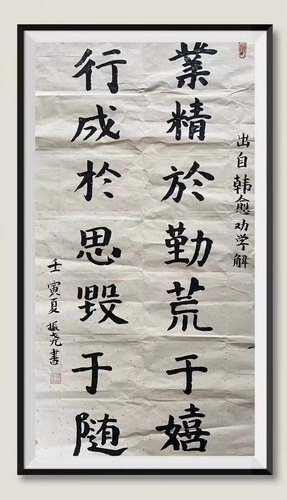 業精於勤荒于嬉
行成於思毁于随
出自韩愈劝学解
壬寅夏振尧書